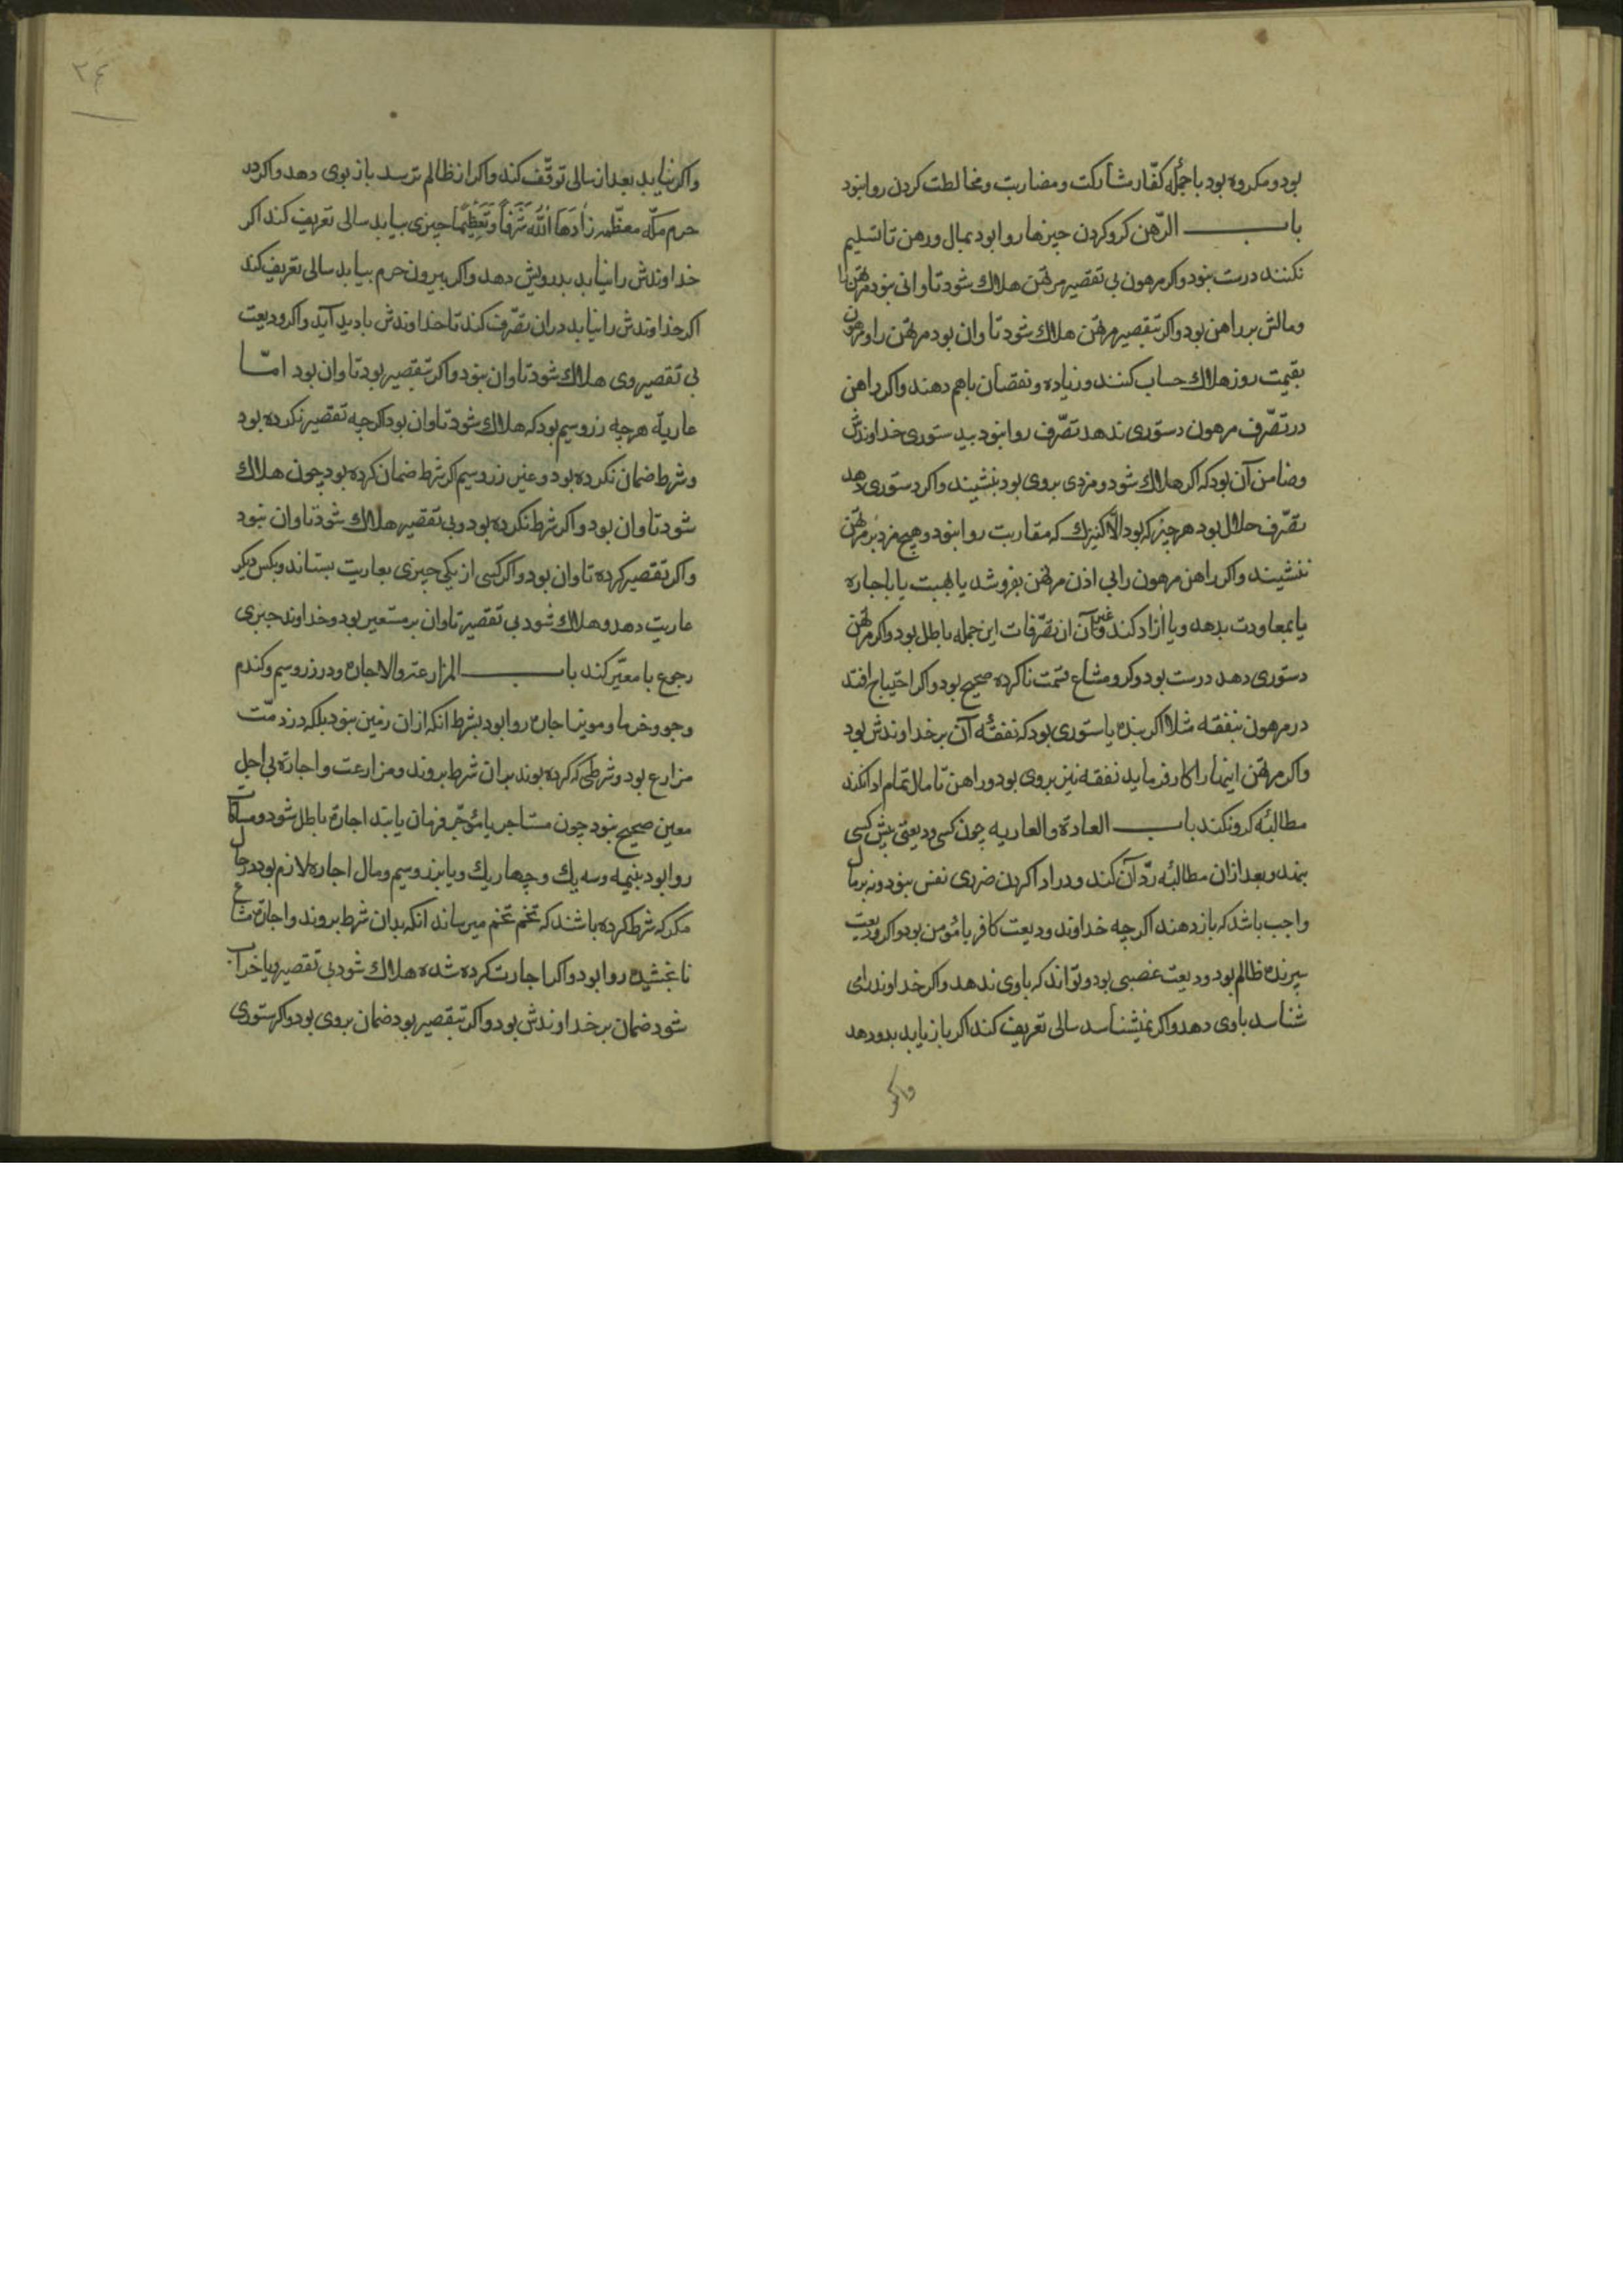 بود و مکروه بود با جملهٔ کفّار مشارکت و مضاربت و مخالطت کردن روا نبود
باب الرّهن کرو کردن چیزها روا بود بمال و رهن تا تسلیم
نکنند درست نبود و اکر مرهون بی تقصیر مرتهن هلاک شود تاوانی نبود مرتهن را
و مالش بر راهن بود و اکر بتقصیر مرتهن هلاک شود تاوان بود مرتهن را و مرهون
بقیمت روز هلاک حساب کنند و زیاده و نقصان باهم دهند و اکر راهن
در تصّرف مرهون دستوری ندهد تصّرف روا نبود بی دستوری خداوندش
و ضامن آن بود که اکر هلاک شود و مزدی بر وی بود بنشیند و اکر دستوری دهد
تصّرف حلال بود هر چیز که بود الّا کنیزک که مقاربت روا نبود و هیچ مزد بر مرتهن
ننشیند و اکر راهن مرهون را بی اذن مرتهن بفروشد یا بهبت یا باجاره
یا بمعاودت بدهد و یا آزاد کند و غیر آن از تصّرفات این جمله باطل بود و اکر مرتهن
دستوری دهد درست بود و کرو مشاع قسمت ناکرده صحیح بود و اکر احتیاج افتد
در مرهون بنفقه مثلا اکر بنده یا ستوری بود که نفقهٔ آن بر خداوندش بود
و اکر مرتهن اینها را کار فرماید نفقه نیز بر وی بود و راهن تا مال تمام ادا نکند
مطالبهٔ کرو نکند باب العادة والعاریه چون کسی ودیعتی پیش کسی
بنهد و بعد از ان مطالبهٔ ردّ آن کند و در ادا کردن ضرری نفس نبود و نه بر مال
واجب باشد که باز دهند اکر چه خداوند ودیعت کافر یا مؤمن بود و اکر ودیعت
سپرنده ظالم بود و ودیعت غصبی بود و تواند که باوی ندهد و اکر خداوند رامی
شناسد باوی دهد و اکر نمیشناسد سالی تعریف کند اکر باز یابد بدو دهد
واکر
۲۴
واکر نیابد بعد از سالی توقّف کند و اکر از ظالم ترسد باز بوی دهد و اکر در
حرم مکّه معظّمه زَادَهَا اللّٰهُ شَرَفاً وَتَعْظِیْمًا چیزی بیابد سالی تعریف کند اکر
خداوندش را نیابد بدرویش دهد و اکر بیرون حرم بیابد سالی تعریف کند
اکر خداوندش را نیابد در ان تصّرف کند تا خداوندش بادید آید و اکر ودیعت
بی تقصیر وی هلاک شود تاوان نبود و اکر بتقصیر بود تاوان بود امّا
عاریّه هرچه زر و سیم بود که هلاک شود تاوان بود اکر چه تقصیر نکرده بود
و شرط ضمان نکرده بود و غیر زر و سیم اکر شرط ضمان کرده بود چون هلاک
شود تاوان بود و اکر شرط نکرده بود و بی تقصیر هلاک شود تاوان نبود
و اکر تقصیر کرده تاوان بود و اکر کسی از یکی چیزی بعاریت بستاند و بکس دیکر
عاریت دهد و هلاک شود بی تقصیر تاوان بر مستعیر بود و خداوند چیزی
رجوع با معیر کند باب المزارعة والاجاره و در زر و سیم و کندم
و جو و خرما و مویز اجاره روا بود بشرط انکه از ان زمین نبود بلکه در ذمّت
مزارع بود و شرطی که کرده بوند بدان شرط بروند و مزارعت و اجارهٔ بی اجل
معین صحیح نبود چون مستاجر یا مؤجر فرمان یابند اجاره باطل شود و مساقات
روا بود بنیمه و سه یک و چهار یک و یا بزر و سیم و مال اجاره لازم بود در حال
مکر که شرط کرده باشند که تخم تخم میرساند انکه بدان شرط بروند و اجارهٔ مشاع
نابخشیده روا بود و اکر اجارت کرده شده هلاک شود بی تقصیر و یا خراب
شود ضمان بر خداوندش بود و اکر بتقصیر بود ضمان بر وی بود و اکر ستوری